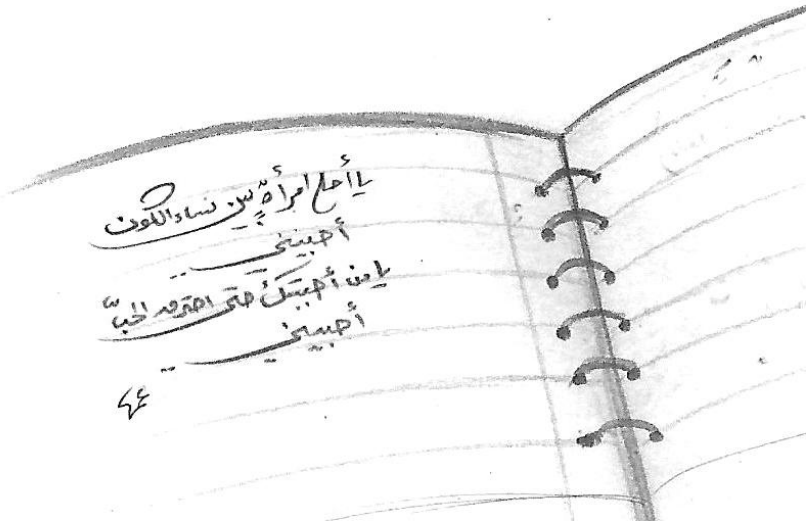 يا أحلى امرأةٍ بين نساء الكون
أحبيني ..
يا من أحببتكِ حتى احترق الحبّ
أحبيني ..